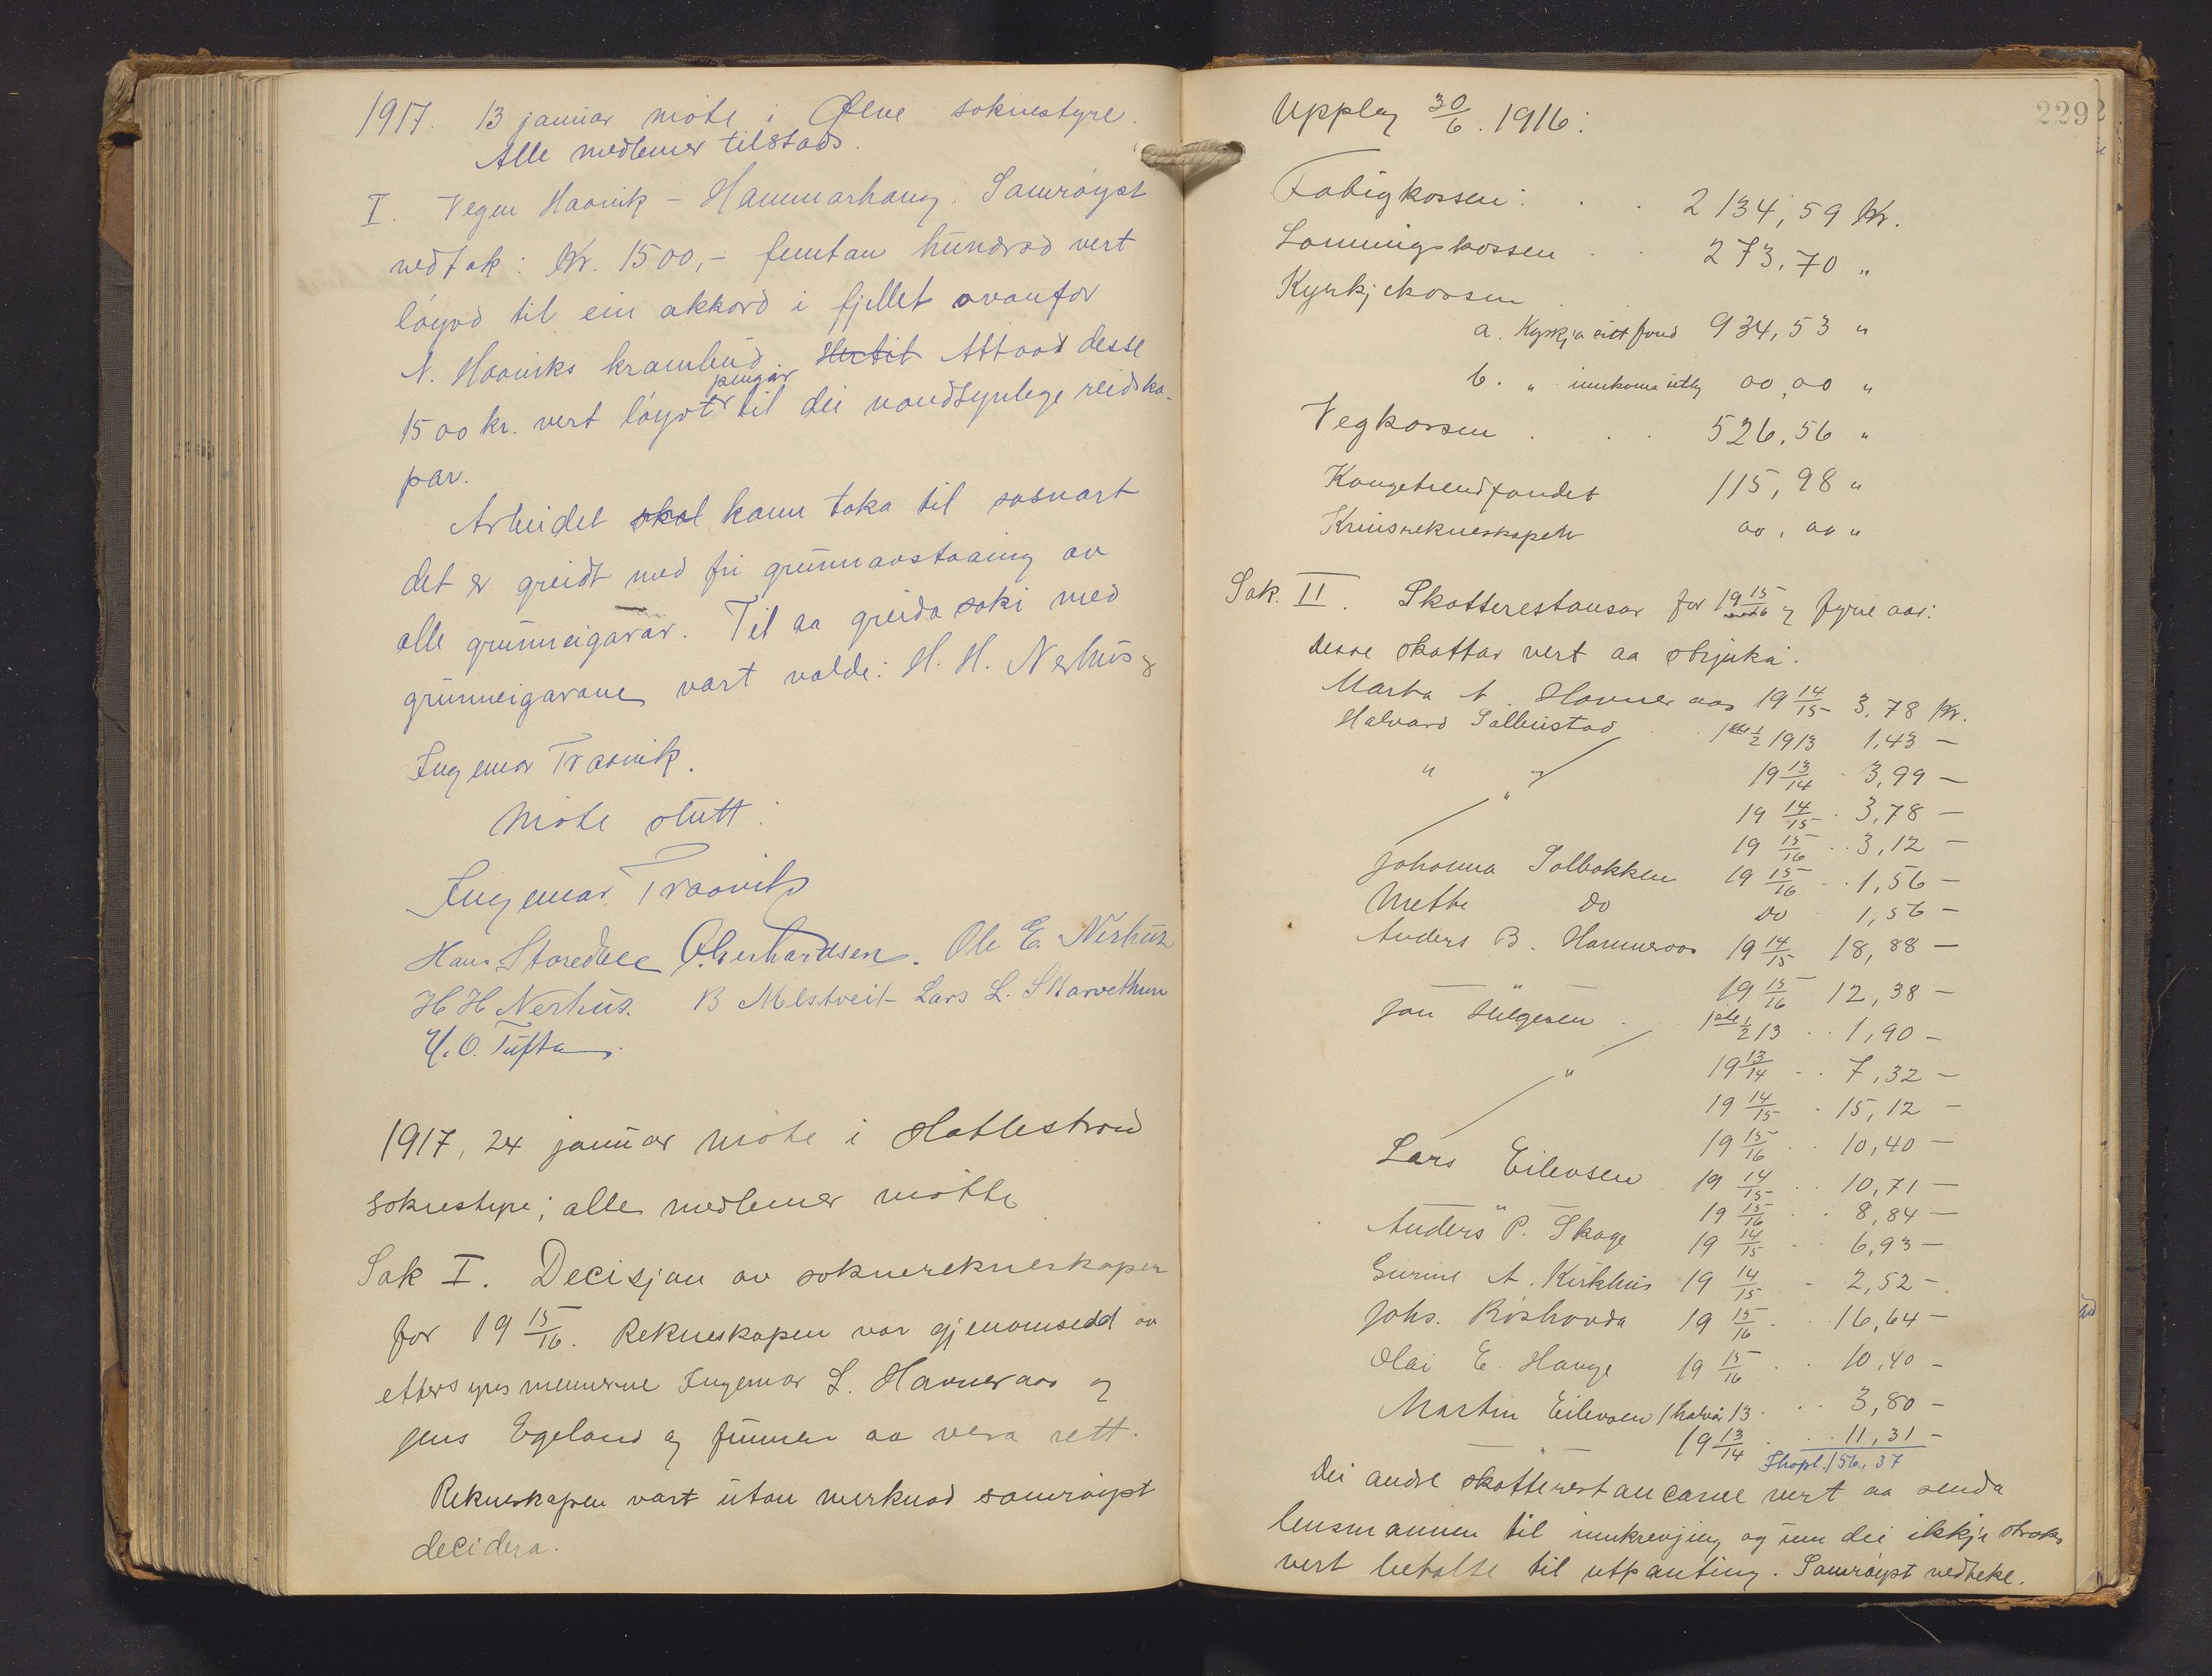 1917. 13 januar møte i Ølve soknestyre.
Alle medlemer tilstads.
I. Vegen Haavik - Hammarhaug. Samrøyst
vedtak: Kr. 1500,- femtan hundrad vert
løyvd til ein akkord i fjellet ovanfor
N. Haaviks krambud. Hertil Attaat desse
pengar
1500 kr. vert løyvt til dei naudsynlege reidska-
par.
Arbeidet skal kann taka til sosnart
det er greidt med fri grunnavstaaing av
alle grunneigarar. Til aa greida saki med
grunneigarane vart valde: H. H. Nerhus og
Ingemar Traavik.
Møte slutt:
Ingemar Traavik
Hans Storedale O. Gerhardsen. Ole E. Nerhus
H H Nerhus. B Melstveit Lars L. Skarvethun
H. O. Tufta
1917, 24 januar møte i Hatlestrand
soknestyre; alle medlemer møtte
Sak I. Decisjon av soknerekneskapen
for 19 15/16. Rekneskapen var gjenomsedd av
ettersynsmennerne Ingemar L. Havneraas og
Jens Egeland og funnen aa vera rett.
Rekneskapen vart utan merknad samrøyst
decidera.
229
Upplag 30/6. 1916:
Fatigkassen: . . 2134,59 Kr.
Lønningskassen . . 273,70 "
Kyrkjekassen
a. Kyrkja sitt fond 934,53 "
b. " innkoma utlg 00,00 "
Vegkassen . . . 526,56 "
Kangetrendfondet 115,98 "
Krinsrekneskapen 00,00 "
Sak. II. Skatterestansar for 19 15/16 og fyrre aar:
Desse skattar vert aa strjuka:
Marta A. Havneraas 19 14/15 3,78 Kr.
Halvard Solbustad . . 1ste 1/2 1913 1,43 -
" " 19 13/14 . 3,99 -
" 19 14/15 . 3,78 -
19 15/16 . . 3,12 -
Johanna Solbakken 19 15/16 . . 1,56 -
Mette do do 1,56 -
Anders B. Havneraas 19 14/15 18,88 -
" 19 15/16 12,38 -
Jon Helgesen . . 1ste 1/2 13 . . 1,90 -
" 19 13/14 . . 7,32 -
19 14/15 . 15,12 -
19 15/16 . . 10,40 -
Lars Eilevsen 19 14/15 . . 10,71 -
" 19 15/16 . . 8,84 -
Anders P. Skage 19 14/15 . . 6,93 -
Gurine A. Kirkhus 19 14/15 - 2,52 -
Johs. Røshovda 19 15/16 . . 16,64 -
Olai E. Hauge 19 15/16 . . 10,40 -
Martin Eilevsen 1 halvår 13 . . . 3,80 -
" 19 13/14 . . . 11,31 -
Ihopl. 156,37
Dei andre skatterestancarne vert aa senda
lensmannen til innkrevjing og um dei ikkje straks
vert betalte til utpanting. Samrøyst vedteke.